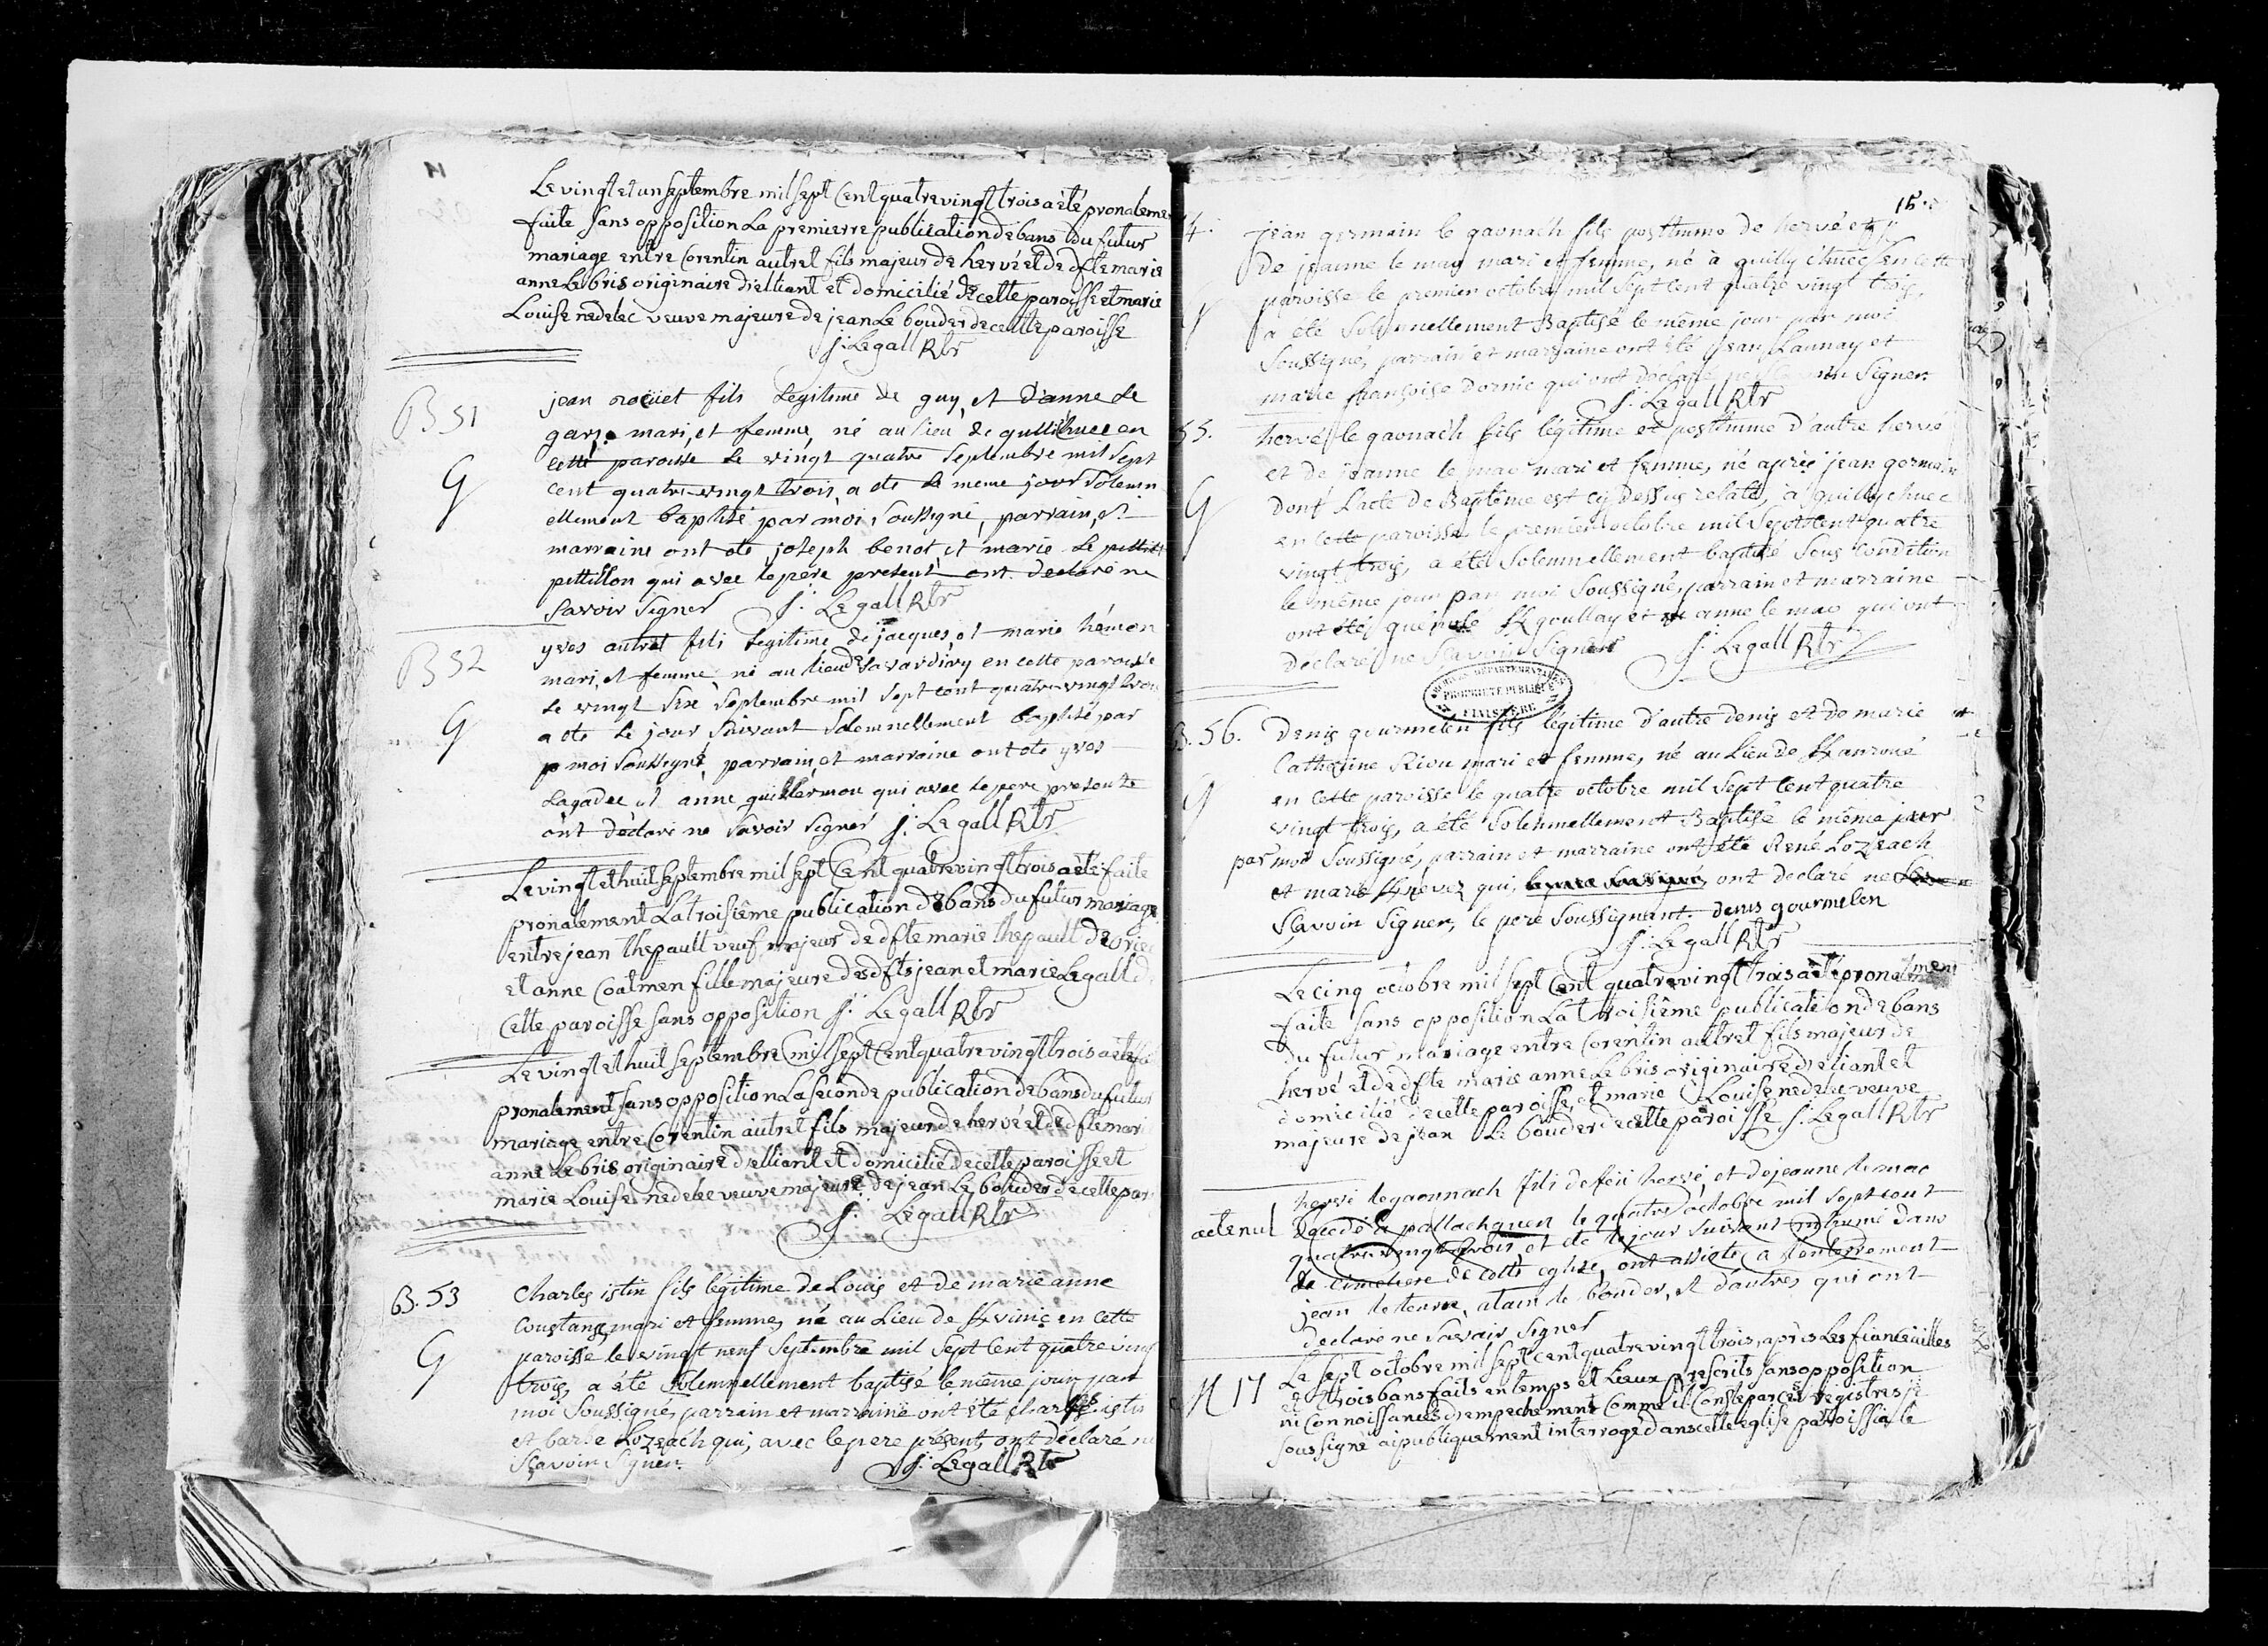 14
Le vingt et un septembre mil sept Cent quatre vingt trois a été pronaleme
faite sans opposition La premierre publication de bans du futur
mariage entre Corentin autret fils majeur de hervé et de dfte marie
anne Le bris originaire d'elliant et domicilié de cette paroisse et marie
Louise nedelec veuve majeure de jean Le bouder de cette paroisse
j: Le gall Rtr
B 51
G
jean roüet fils Legitime de guy, et d'anne Le
mari, et femme, né au lieu de quillihuec en
cette paroisse Le vingt quatre Septembre mil Sept
cent quatre-vingt trois, a ete Le meme jour Solemn
ellement baptisé par moi, Soussigné, parrain, et
marraine ont ete joseph benot et marie Le
petillon qui avec le père present ont declaré ne
Savoir Signer j: Le gall Rtr
B 52
G
yves autret fils Legitime de jacques, et marie hémon
mari, et femme, né au lieu de en cette paroisse
Le vingt Six Septembre mil Sept cent quatre-vingt trois
a ete Le jour Suivant Solemnellement baptisé par
p moi Soussigné, parrain, et marraine ont ete yves
Lagadec et anne guillermou qui avec le pere presente
ont déclaré ne Savoir Signer j: Le gall Rtr
Le vingt et huit septembre mil sept Cent quatre vingt trois a été faite
pronalement La troisiême publication de bans du futur mariage
entre jean thepault veuf majeur de dfte marie thepault de
et anne Coatmen fille majeure des dfts jean et marie Le gall d
Cette paroisse sans opposition j: Le gall Rtr
Le vingt et huit septembre mil sept Cent quatre vingt trois a été
pronalement sans opposition La seconde publication de bans du futur
mariage entre Corentin autret fils majeur de hervé et de dfte mari
anne Le bris originaire d'elliant et domicilié de cette paroisse et
marie Louise nedelec veuve majeure de jean Le bouder de cette par
j: Le gall Rtr
B. 53
G
Charles istin fils légitime de Louis et de marie anne
Coustans mari et femme, né au Lieu de en cette
paroisse le vingt neuf Septembre mil Sept Cent quatre ving
trois, a été Solemnellement baptisé le même jour par
moi Soussigné, parrain et marraine ont été charles istin
et barbe Lozeach qui, avec le pere présent, ont déclaré ne
Sçavoir Signer. j: Le gall Rtr
15.
4.
G
jean germain le gaonach fils posthume de hervé et
de jeanne le mao mari et femme, né à quilly chuec en cette
paroisse le premier octobre mil Sept Cent quatre vingt trois,
a été Solemnellement Baptisé le même jour par moi
Soussigné, parrain et marraine ont été jean Launay et
marie françoise Dornic qui ont declaré ne Signer
j: Le gall Rtr
55.
G
hervé le gaonach fils légitime et posthume d'autre hervé
et de jeanne le mao mari et femme, né après jean germain
dont L'acte de Baptême est cy dessus relaté, à quilly chuec
en cette paroisse le premier octobre mil Sept Cent quatre
vingt trois, a été Solemnellement baptisé Sous Condition
le même jour par moi Soussigné, parrain et marraine
ont été et anne le mao qui ont
déclaré ne Sçavoir Signer j: Le gall Rtr
ARCHIVES DÉPARTEMENTALES
PROPRIÉTÉ PUBLIQUE
FINISTÈRE
B. 56.
G
Denis gourmelen fils légitime d'autre denis et de marie
Catherine Riou mari et femme, né au Lieu de
en cette paroisse le quatre octobre mil Sept Cent quatre
vingt trois, a été Solemnellement Baptisé le même jour
par moi Soussigné, parrain et marraine ont été René Lozeach
et marie qui, ont declaré ne
Sçavoir Signer, le pere Soussignant. denis gourmelen
j: Le gall Rtr
Le cinq octobre mil sept Cent quatre vingt trois a été pronalement
faite sans opposition La troisiême publication de bans
du futur mariage entre Corentin autret fils majeur de
hervé et de dfte marie anne Le bris originaire d'eliant et
domicilié de cette paroisse, et marie Louise nedelec veuve
majeure de jean Le bouder de cette paroisse j: Le gall Rtr
acte nul
hervé le gaonnach fils de feu hervé, et de jeanne le mac
decedé à pallachguen le quatre octobre mil Sept cent
quatre-vingt trois, et ete le jour Suivant inhumé dans
Le cimetiere de cette eglise, ont assisté a L'enterrement
jean alain le bouder, et d'autres qui ont
declaré ne Savoir Signer
M 17
Le sept octobre mil sept cent quatre vingt trois, après Les fiancailles
et trois bans faits en temps et Lieux prescrits sans opposition
ni Connoissances d'empechement Comme il Conste par ces registres je
soussigné ai publiquement interrogé dans cette eglise paroissiale